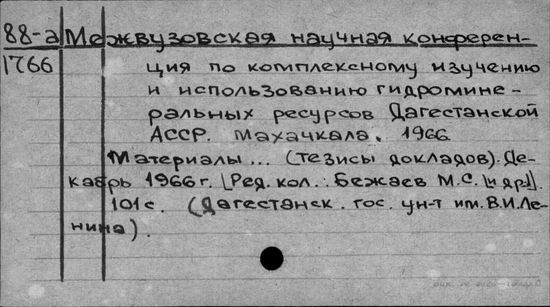 88-а Межвузовская научная конферен-
1766 ция по комплексному изучению
и использованию гидромине-
ральных ресурсов Дагестанской
АССР. Махачкала. 1966
Материалы... (тезисы докладов). Де-
кабрь 1966 г. [Ред. кол.: Бежаев М.С. [и др.].
101 с. (Дагестанск. гос. ун-т им. В.И. Ле-
нина).